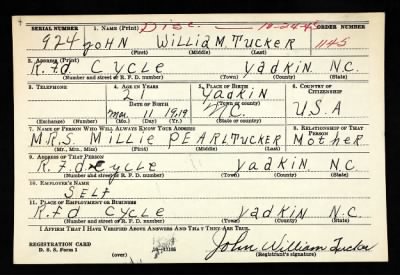 SERIAL NUMBER 1. NAME (Print) Disc. 10-24-45 ORDER NUMBER
924 JOHN WILLIAM TUCKER 1145
(First) (Middle) (Last)
2. ADDRESS (Print)
R.F.d CYCLE YADKIN N.C.
(Number and street or R. F. D. number) (Town) (County) (State)
3. TELEPHONE 4. AGE IN YEARS 5. PLACE OF BIRTH 6. COUNTRY OF CITIZENSHIP
21 YADKIN
DATE OF BIRTH (Town or county)
Mar 11 1919 N.C. U.S.A
(Exchange) (Number) (Mo.) (Day) (Yr.) (State or country)
7. NAME OF PERSON WHO WILL ALWAYS KNOW YOUR ADDRESS 8. RELATIONSHIP OF THAT PERSON
MRS. MILLIE PEARL TUCKER MOTHER
(Mr., Mrs., Miss) (First) (Middle) (Last)
9. ADDRESS OF THAT PERSON
R.F.d CYCLE YADKIN N.C.
(Number and street or R. F. D. number) (Town) (County) (State)
10. EMPLOYER'S NAME
SELF
11. PLACE OF EMPLOYMENT OR BUSINESS
R.F.d CYCLE YADKIN N.C.
(Number and street or R. F. D. number) (Town) (County) (State)
I AFFIRM THAT I HAVE VERIFIED ABOVE ANSWERS AND THAT THEY ARE TRUE.
REGISTRATION CARD
D. S. S. Form 1 (over) John William Tucker
(Registrant's signature)